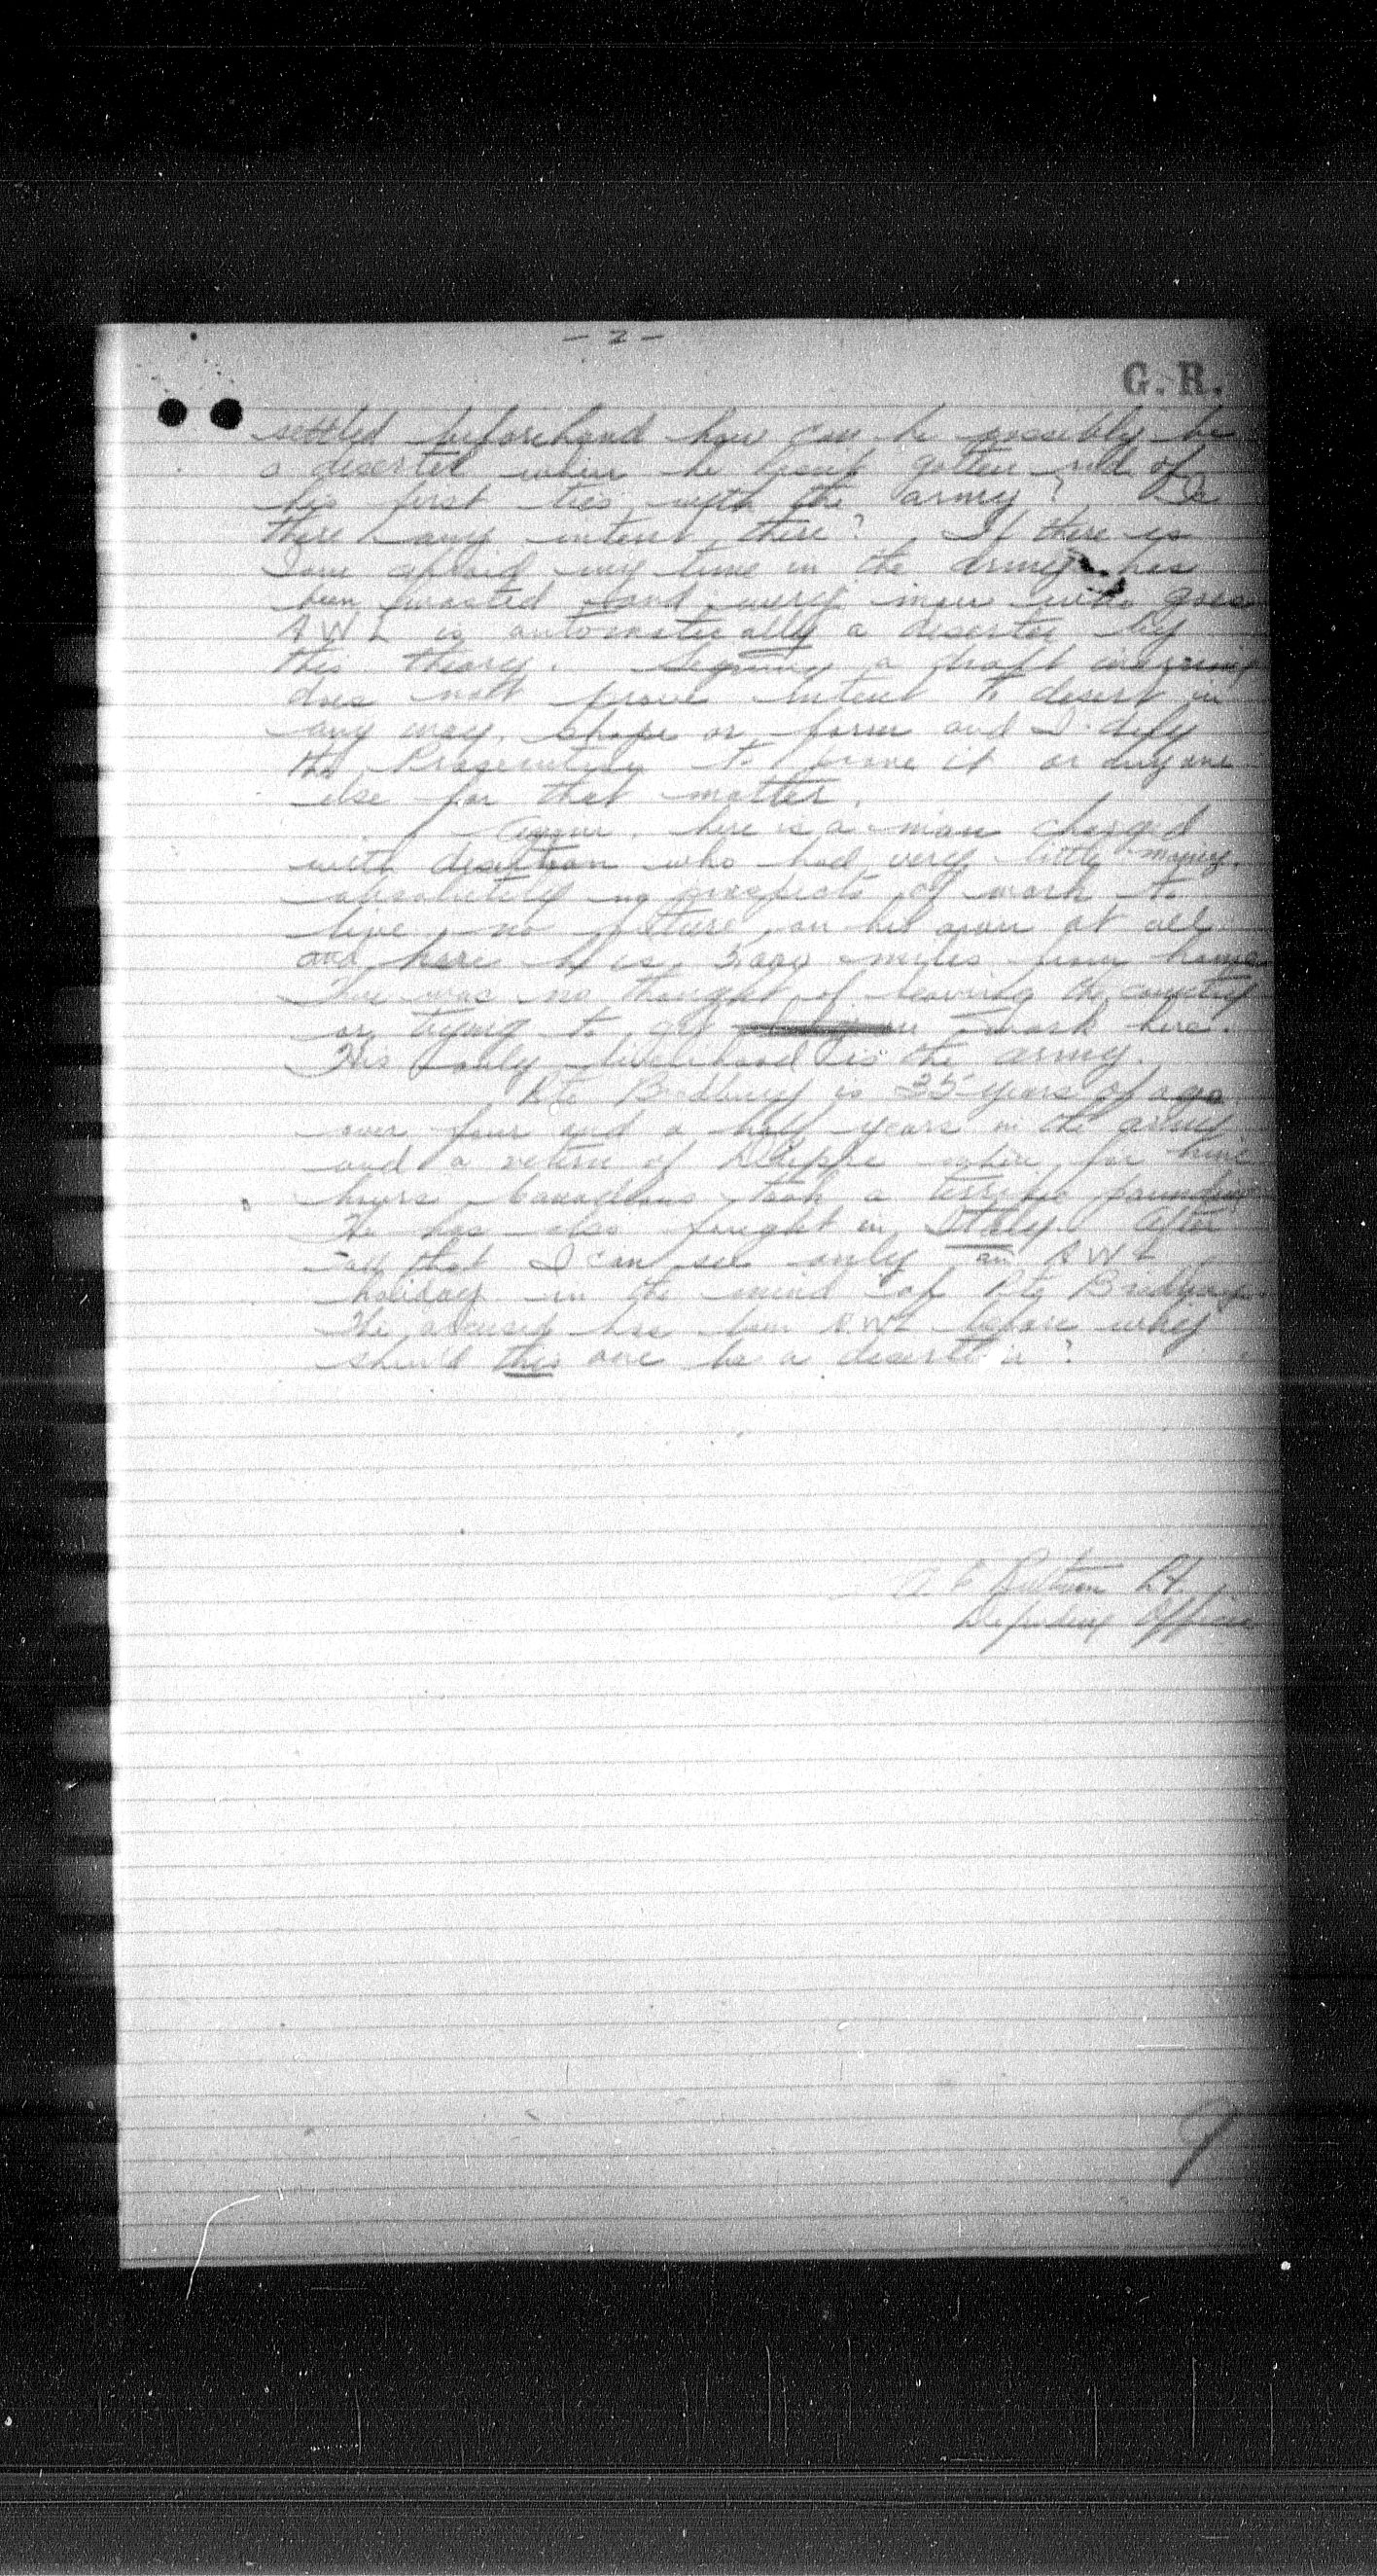 - 2 -
G. R.
settled beforehand how can he possibly be
a deserter when he hasn't gotten rid of
his first ties with the army? Is
there any intent there? If there is
I am afraid my time in the army has
been wasted and every man who goes
AWL is automatically a deserter by
this theory. Signing a draft warning
does not prove intent to desert in
any way, shape or form and I defy
the Prosecution to prove it or anyone
else for that matter.
Again, here is a man charged
with desertion who had very little money,
absolutely no prospects of work to
live, no future on his own at all
and here he is 3,000 miles from home
There was no thought of leaving the country
or trying to get work here.
His only livelihood is the army.
Pte Bradbury is 35 years of age
over four and a half years in the army
and a veteran of Dieppe where for nine
hours Canadians took a terrific pounding
He has also fought in Italy. After
all that I can see only an AWL
holiday in the mind of Pte Bradbury.
The accused has been AWL before why
should this one be a desertion?
Lt
Defending Officer
9